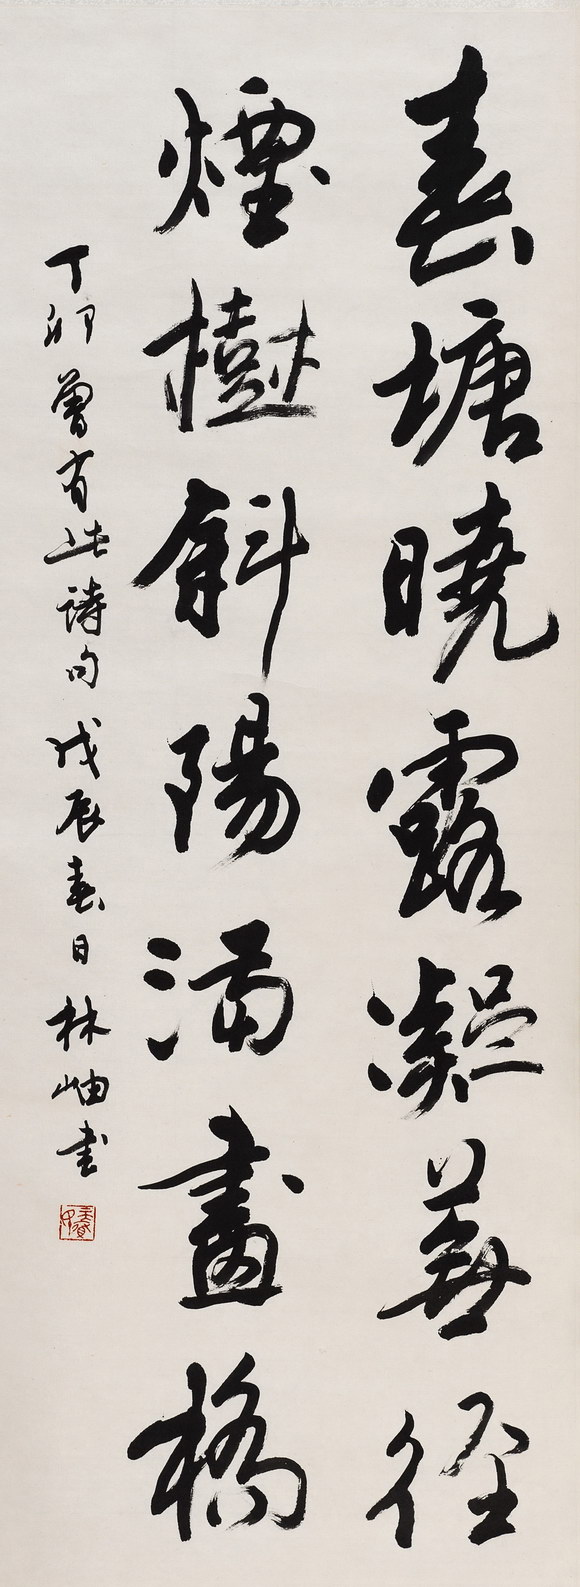 春塘曉露凝芳徑
煙樹斜陽滿畫橋
丁卯曾有此詩句戊辰春日林岫書